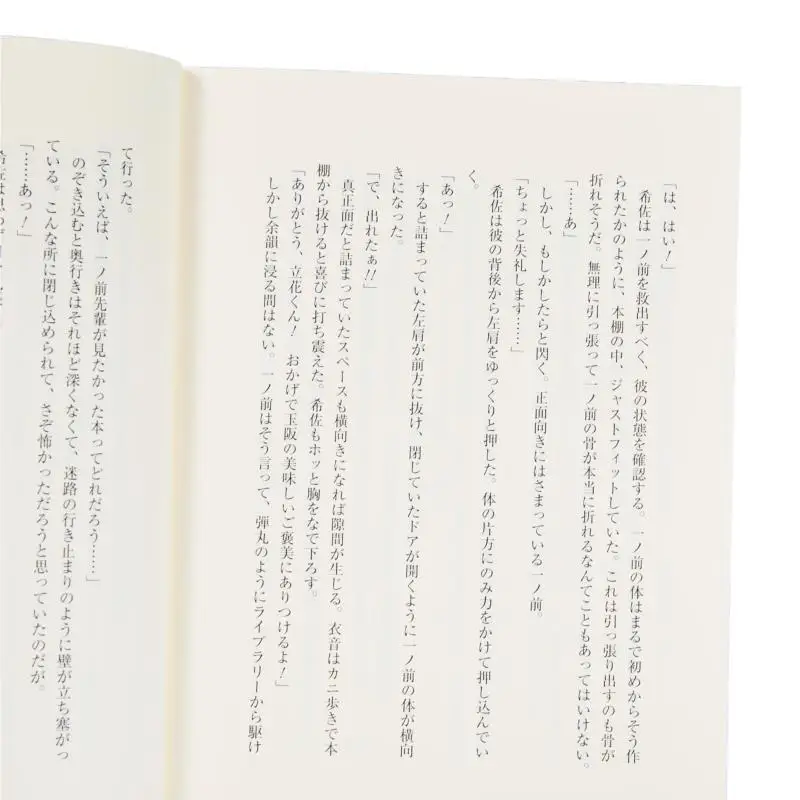 「は、はい！」
希佐は一ノ前を救出すべく、彼の状態を確認する。一ノ前の体はまるで初めからそう作
られたかのように、本棚の中、ジャストフィットしていた。これは引っ張り出すのも骨が
折れそうだ。無理に引っ張って一ノ前の骨が本当に折れるなんてこともあってはいけない。
「……あ」
しかし、もしかしたらと閃く。正面向きにはさまっている一ノ前。
「ちょっと失礼します……」
希佐は彼の背後から左肩をゆっくりと押した。体の片方にのみ力をかけて押し込んでい
く。
「あっ！」
すると詰まっていた左肩が前方に抜け、閉じていたドアが開くように一ノ前の体が横向
きになった。
「で、出れたぁ!!」
真正面だと詰まっていたスペースも横向きになれば隙間が生じる。衣音はカニ歩きで本
棚から抜けると喜びに打ち震えた。希佐もホッと胸をなで下ろす。
「ありがとう、立花くん！　おかげで玉阪の美味しいご褒美にありつけるよ！」
しかし余韻に浸る間はない。一ノ前はそう言って、弾丸のようにライブラリーから駆け
て行った。
「そういえば、一ノ前先輩が見たかった本ってどれだろう……」
のぞき込むと奥行きはそれほど深くなくて、迷路の行き止まりのように壁が立ち塞がっ
ている。こんな所に閉じ込められて、さぞ怖かっただろうと思っていたのだが。
「……あっ！」